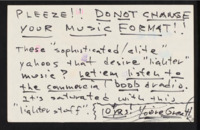 PLEEZE!! DO NOT CHANGE
YOUR MUSIC FORMAT!!
These "sophisticated/elite"
yahoos that desire "lighter"
music? Let 'em listen to
the commercial boob radio.
It's saturated with this
"lighter stuff"!